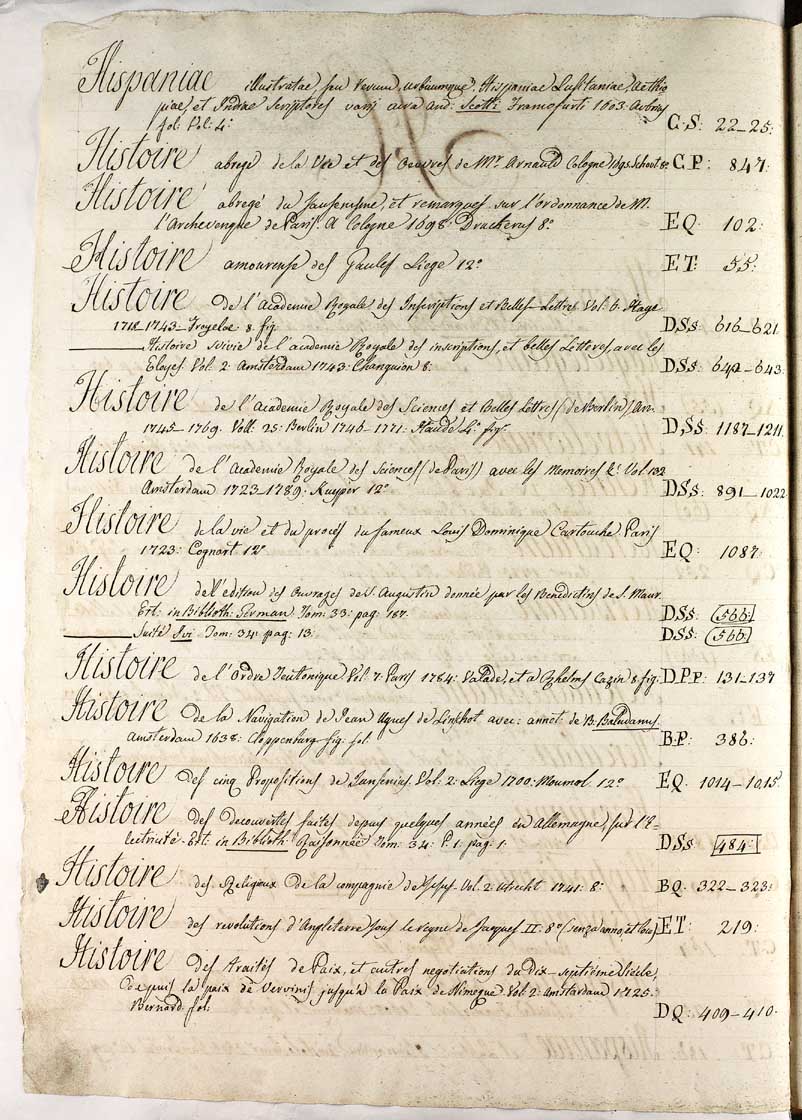 Hispaniae illustratae, seu Rerum, urbiumque Hispaniae Lusitaniae, Aethio
piae, et Indiae Scriptores varij cura And. Scotti Francofurti 1603. Aubrij
fol: Vol: 4: C,S: 22-25:
Histoire abregé de la Vie et des Oeuvres de Mr. Arnauld Cologne 1695. Schoot 8: C.P: 847:
Histoire abregé du Jansenisme, et remarques sur l'ordonnance de M.
l'Archevenque de Paris. A Cologne 1698: Druckerus 8º EQ: 102:
Histoire amoureuse des Gaules Liege 12º ET: 55:
Histoire de l'Academie Royale des Inscriptions et Belles-Lettres Vol: 6: Haye
1718-1743- Troyeloe 8. fig. DSs: 616-621
Histoire suivie de l'academie Royale des inscriptions, et belles Lettres, avec les
Eloges Vol: 2: Amsterdam 1743: Changuion 8: DSs: 642-643
Histoire de l'Academie Royale des Sciences et Belles Lettres (de Berlin) An.
1745-1769. Voll: 25: Berlin 1746-1771: Haude 4: fig. D,Ss: 1187-1211
Histoire de l'Academie Royale des Sciences (de Paris) avec les Memoires &. Vol. 132
Amsterdam 1723-1789: Kuyper 12º DSs: 891-1022
Histoire de la vie et du procés du fameux Louis Dominique Cartouche Paris
1723: Cognart 12º EQ: 1087:
Histoire de l'edition des Ouvrages de S. Augustin donnée par les Benedictins de S. Maur.
Ext: in Biblioth: German Tom: 33: pag: 187. DSs: 566:
Suite Ivi Tom: 34: pag: 13: DSs: 566:
Histoire de l'Ordre Teutonique Vol: 7: Paris 1784: Valade, et a Rhelms Cazin 8 fig: D.PP: 131-137
Histoire de la Navigation de Jean Ugues de Linschot avec: annot: de B. Baludanus
Amsterdam 1638: Cloppenburg fig: fol: B.P: 386:
Histoire des cinq Propositions de Jansenius. Vol: 2: Liege 1700: Moumol 12º EQ: 1014-1015:
Histoire des decouvertes faites depuis quelques années en Allemagne, sur l'E-
lectricité. Ext: in Biblioth: Raisonnée Tom: 34: P: 1. pag: 1: DSs 484:
Histoire des Religieux de la compagnie de Jesus. Vol: 2: Utrecht 1741: 8º BQ: 322-323:
Histoire des revolutions d'Angleterre sous le regne de Jacques II: 8º (senza anno, et luo) ET: 219:
Histoire des Traités de Paix, et autres negotiations du Dix-septiéme siécle,
depuis la paix de Vervins jusqu'a la Paix de Nimegue Vol: 2: Amsterdam 1725.
Bernard. fol: DQ: 409-410.